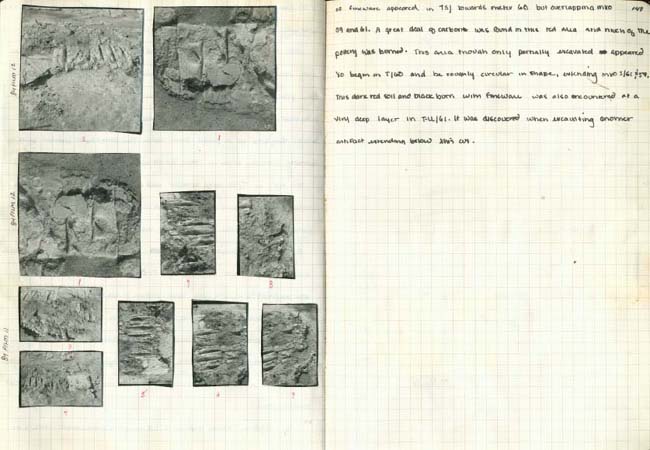 84 FILM 12
2
1
84 FILM 12
1
9
8
84 FILM 11
7
5
6
9
149
of fineware appeared in T5J towards meter 60 but overlapping into
59 and 61. A great deal of carbons was found in this red area and much of the
pottery was burned. This area though only partially excavated appeared
to begin in T/60 and be roughly circular in shape, extending into J/61 & 59.
This dark red soil and black born with fineware was also encountered at a
very deep layer in T-LL/61. It was discovered when excavating another
artifact extending below this cut.